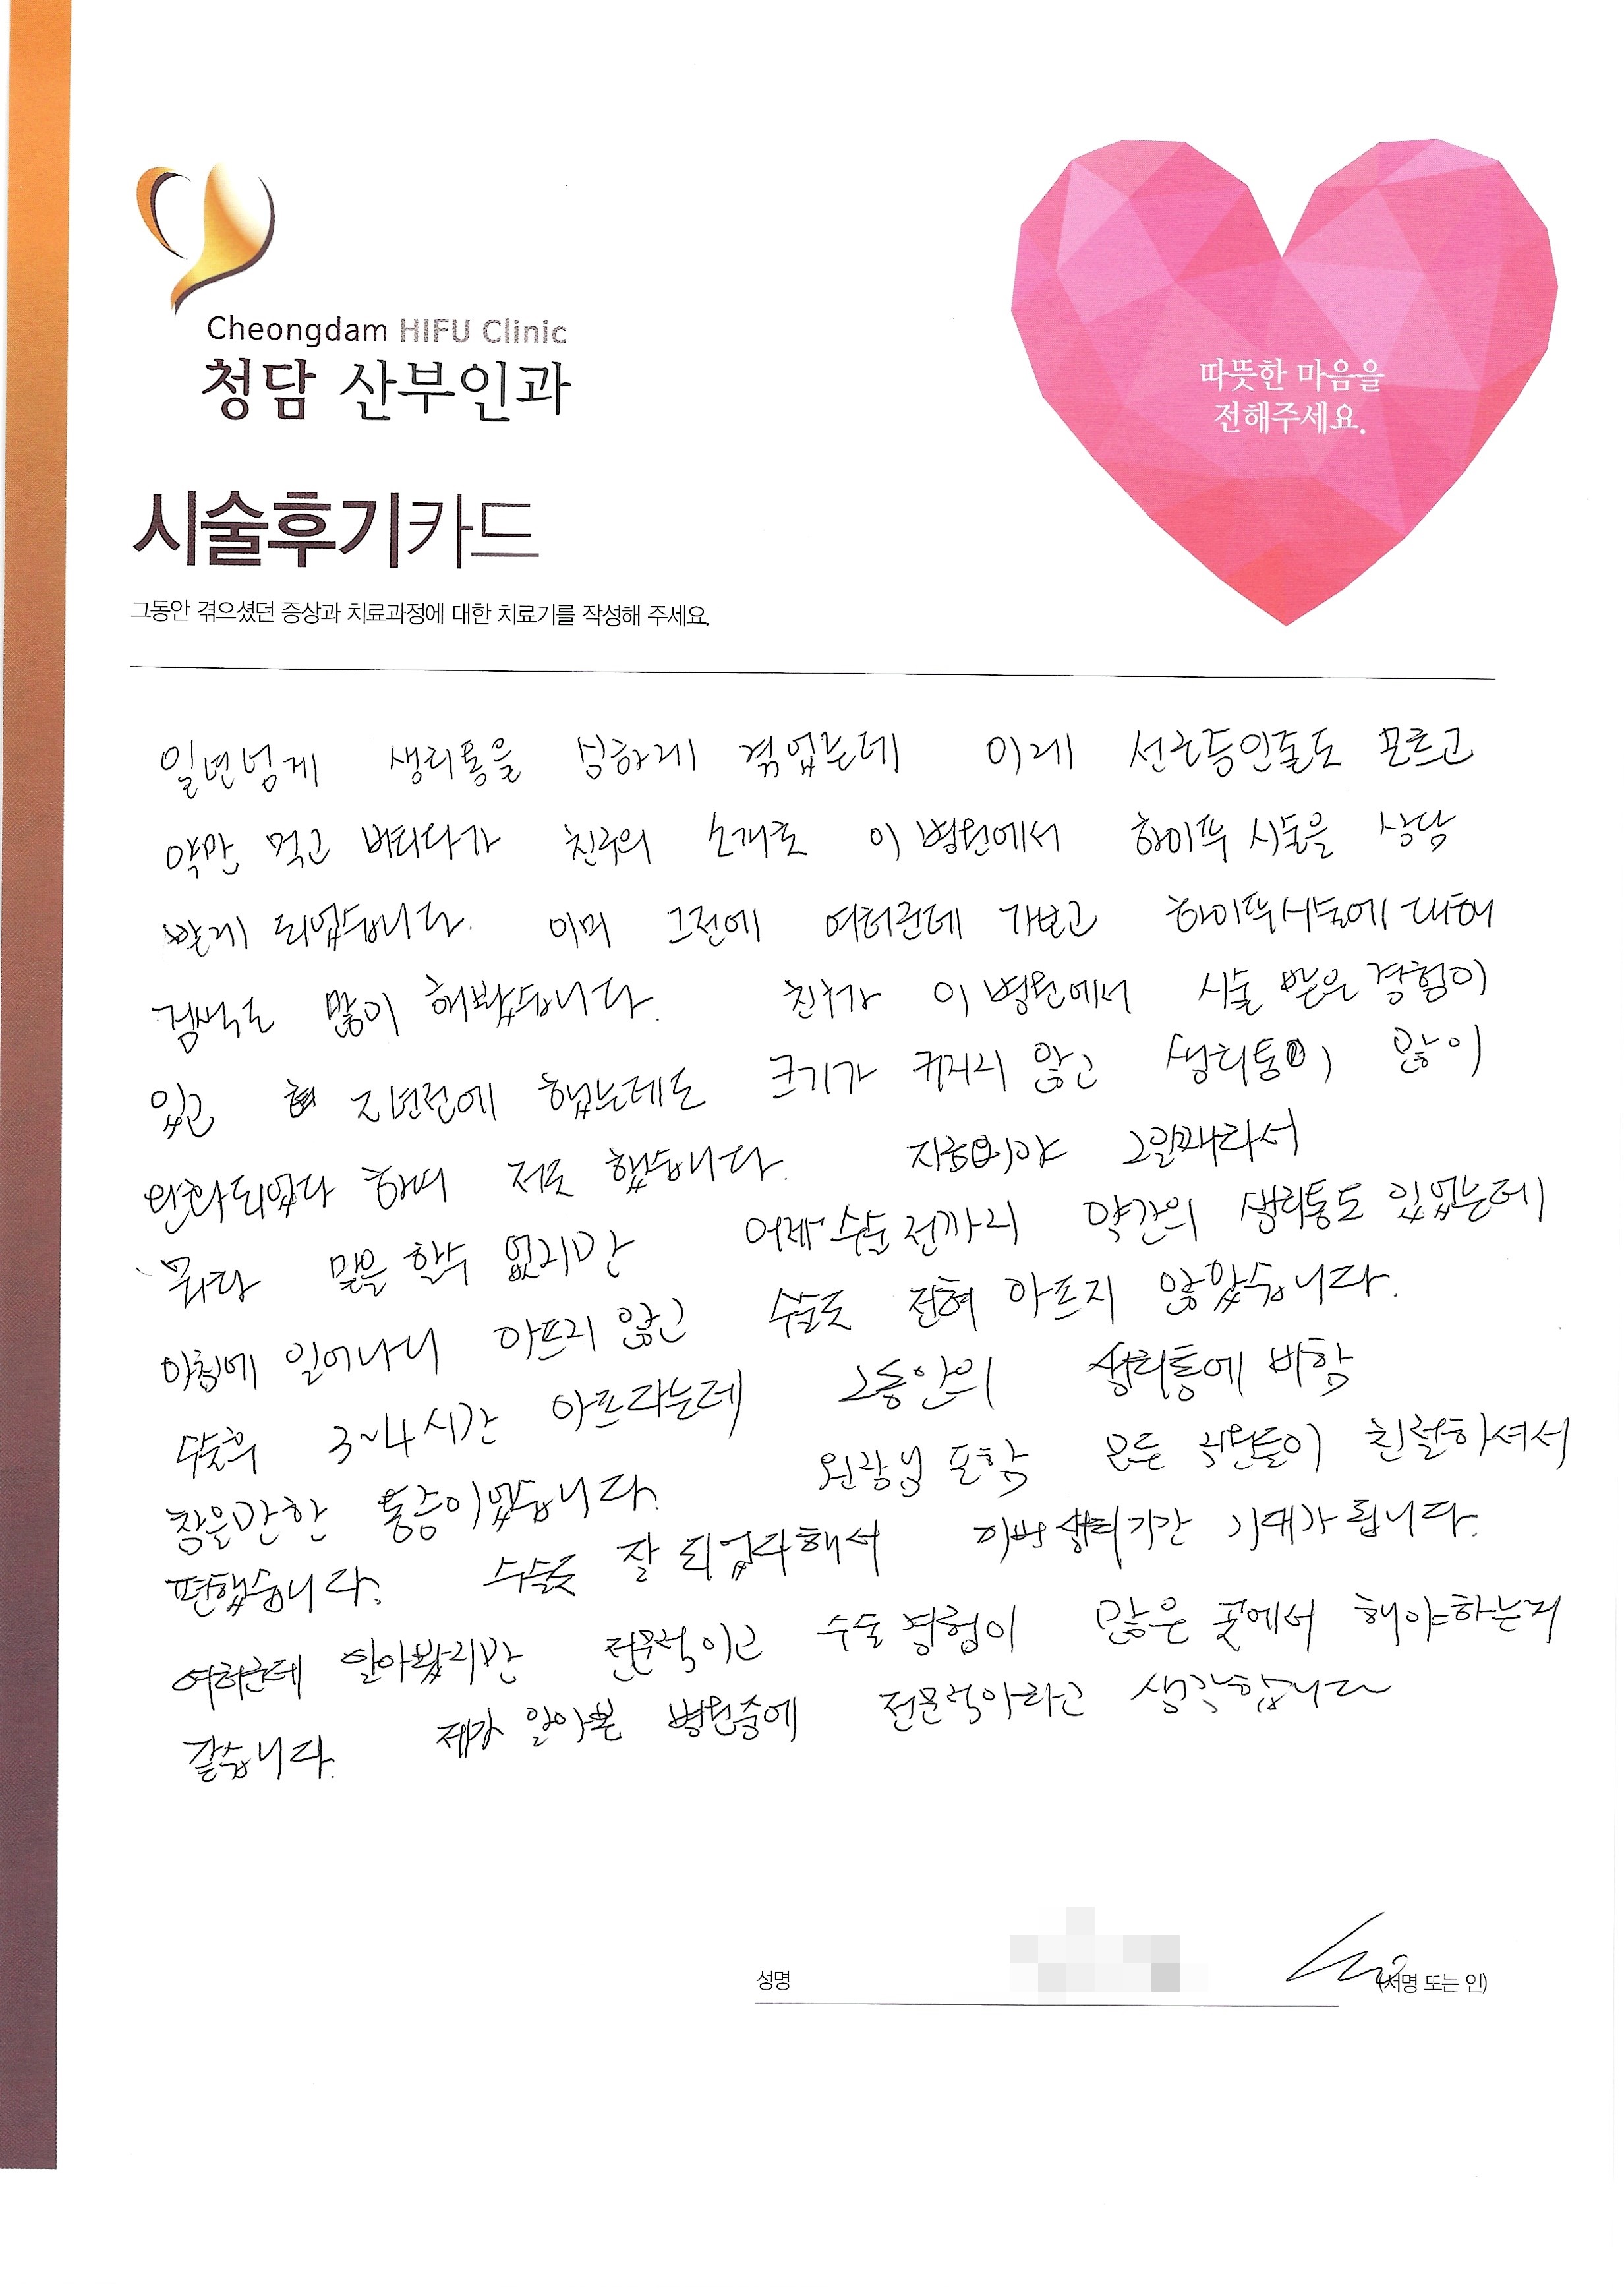 Cheongdam HIFU Clinic
청담 산부인과
따뜻한 마음을
전해주세요.
시술후기카드
그동안 겪으셨던 증상과 치료과정에 대한 치료기를 작성해 주세요.
일년넘게 생리통을 심하게 겪었는데 이게 선근증인줄도 모르고
약만 먹고 버티다가 친구의 소개로 이 병원에서 하이푸 시술을 상담
받게 되었습니다. 이미 그전에 여러군데 가보고 하이푸시술에 대해
검색도 많이 해봤습니다. 친구가 이 병원에서 시술 받은 경험이
있고 년전에 했는데도 크기가 커지지 않고 생리통이 많이
완화되었다 하여 저도 했습니다. 그일째라서
뭐라 말을 할수 없지만 어제 수술전까지 약간의 생리통도 있었는데
아침에 일어나니 아프지 않고 수술도 전혀 아프지 않았습니다.
수술후 3~4시간 아프다는데 그동안의 생리통에 비함
참을만한 통증이였습니다. 원장님 포함 모든 직원들이 친절하셔서
편했습니다. 수술도 잘 되었다해서 이번 생리기간 기대가 됩니다.
여러군데 알아봤지만 전문적이고 수술 경험이 많은 곳에서 해야하는거
같습니다. 제가 알아본 병원중에 전문적이라고 생각합니다
성명 (서명 또는 인)